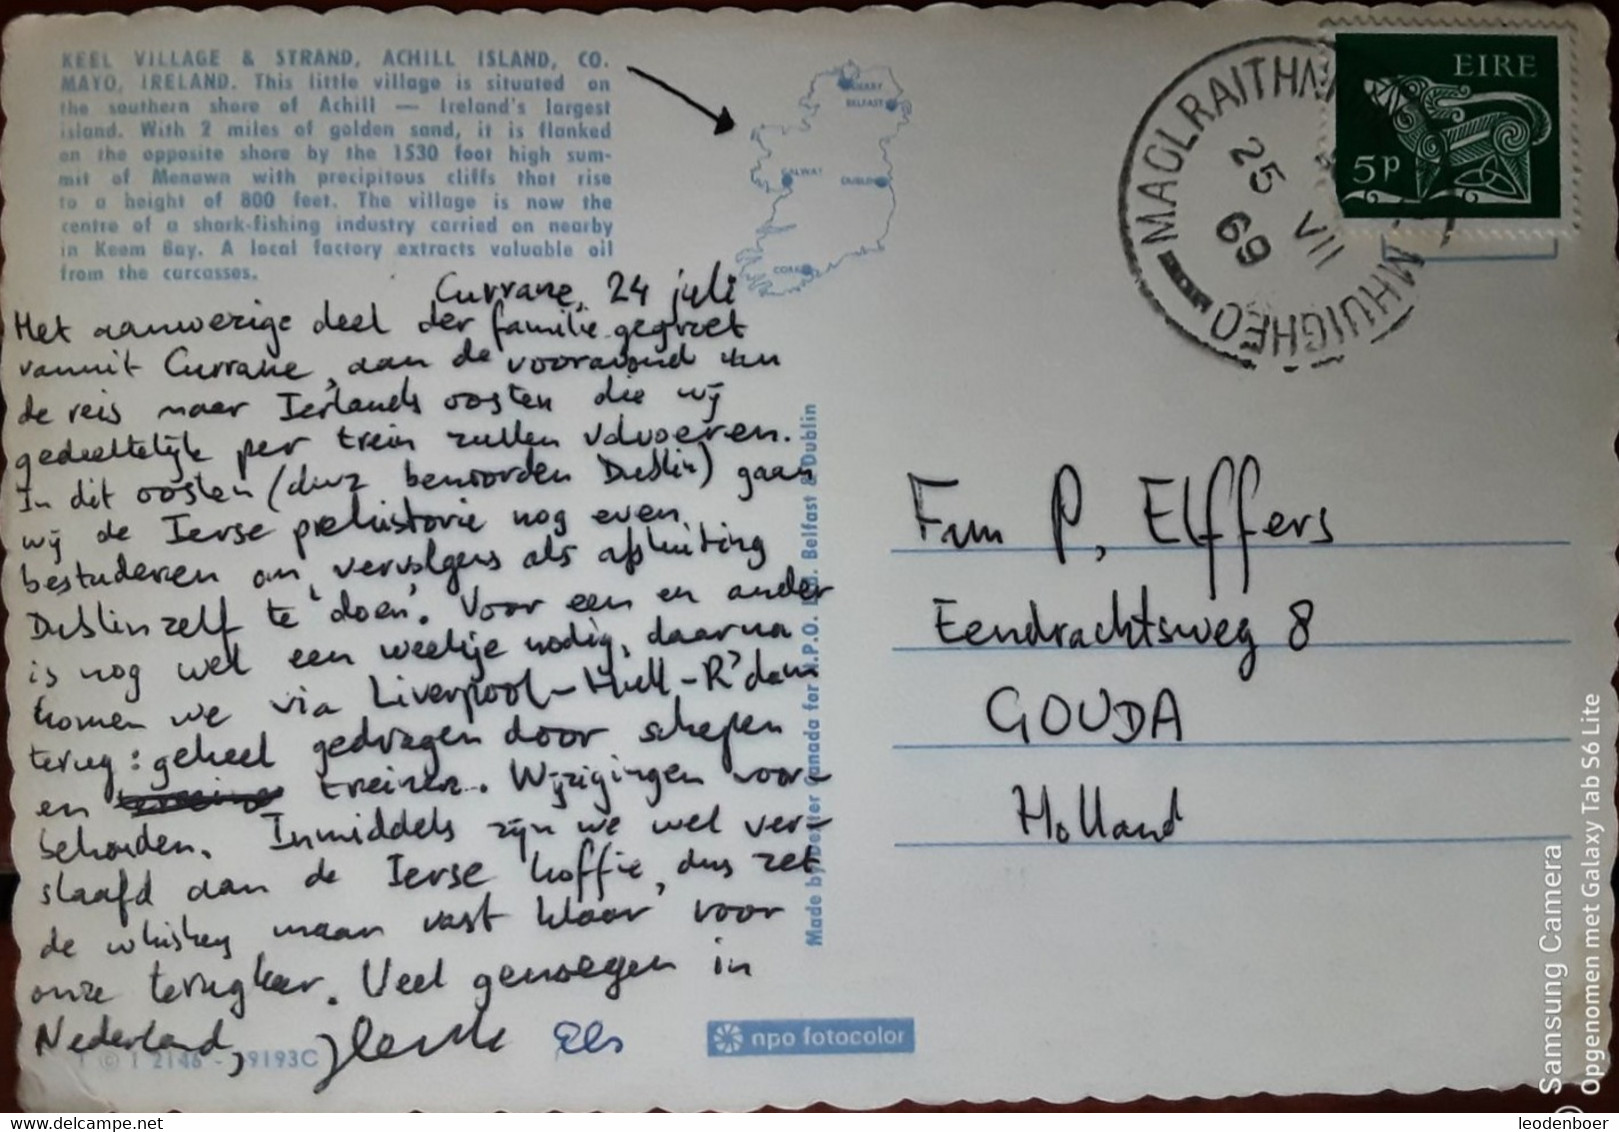 KEEL VILLAGE & STRAND, ACHILL ISLAND, CO.
MAYO, IRELAND. This little village is situated on
the southern shore of Achill — Ireland's largest
island. With 2 miles of golden sand, it is flanked
on the opposite shore by the 1530 foot high sum-
mit of Menawn with precipitous cliffs that rise
to a height of 800 feet. The village is now the
centre of a shark-fishing industry carried on nearby
in Keem Bay. A local factory extracts valuable oil
from the carcasses.
BELFAST
GALWAY
DUBLIN
CORK
MAOLRAITHN
MHUIGHEO
25
VII
69
EIRE
5p
Currane, 24 juli
Het aanwezige deel der familie gegroet
vanuit Currane, aan de vooravond van
de reis naar Ierlands oosten die wij
gedeeltelijk per trein zullen volvoeren.
In dit oosten (dus benoorden Dublin) gaan
wij de Ierse prehistorie nog even
bestuderen om vervolgens als afsluiting
Dublin zelf te 'doen'. Voor een en ander
is nog wel een weekje nodig, daarna
komen we via Liverpool-Hull-R'dam
terug: geheel gedragen door schepen
en treinen. Wijzigingen voor-
behouden. Inmiddels zijn we wel ver-
slaafd aan de Ierse koffie, dus zet
de whiskey maar vast klaar voor
onze terugkeer. Veel genoegen in
Nederland,
Els
Fam P. Elffers
Eendrachtsweg 8
GOUDA
Holland
Made by Dexter Canada for N.P.O. Ltd. Belfast & Dublin
1 © I 2146 - 9193C
npo fotocolor
Samsung Camera
Opgenomen met Galaxy Tab S6 Lite
www.delcampe.net
leodenboer